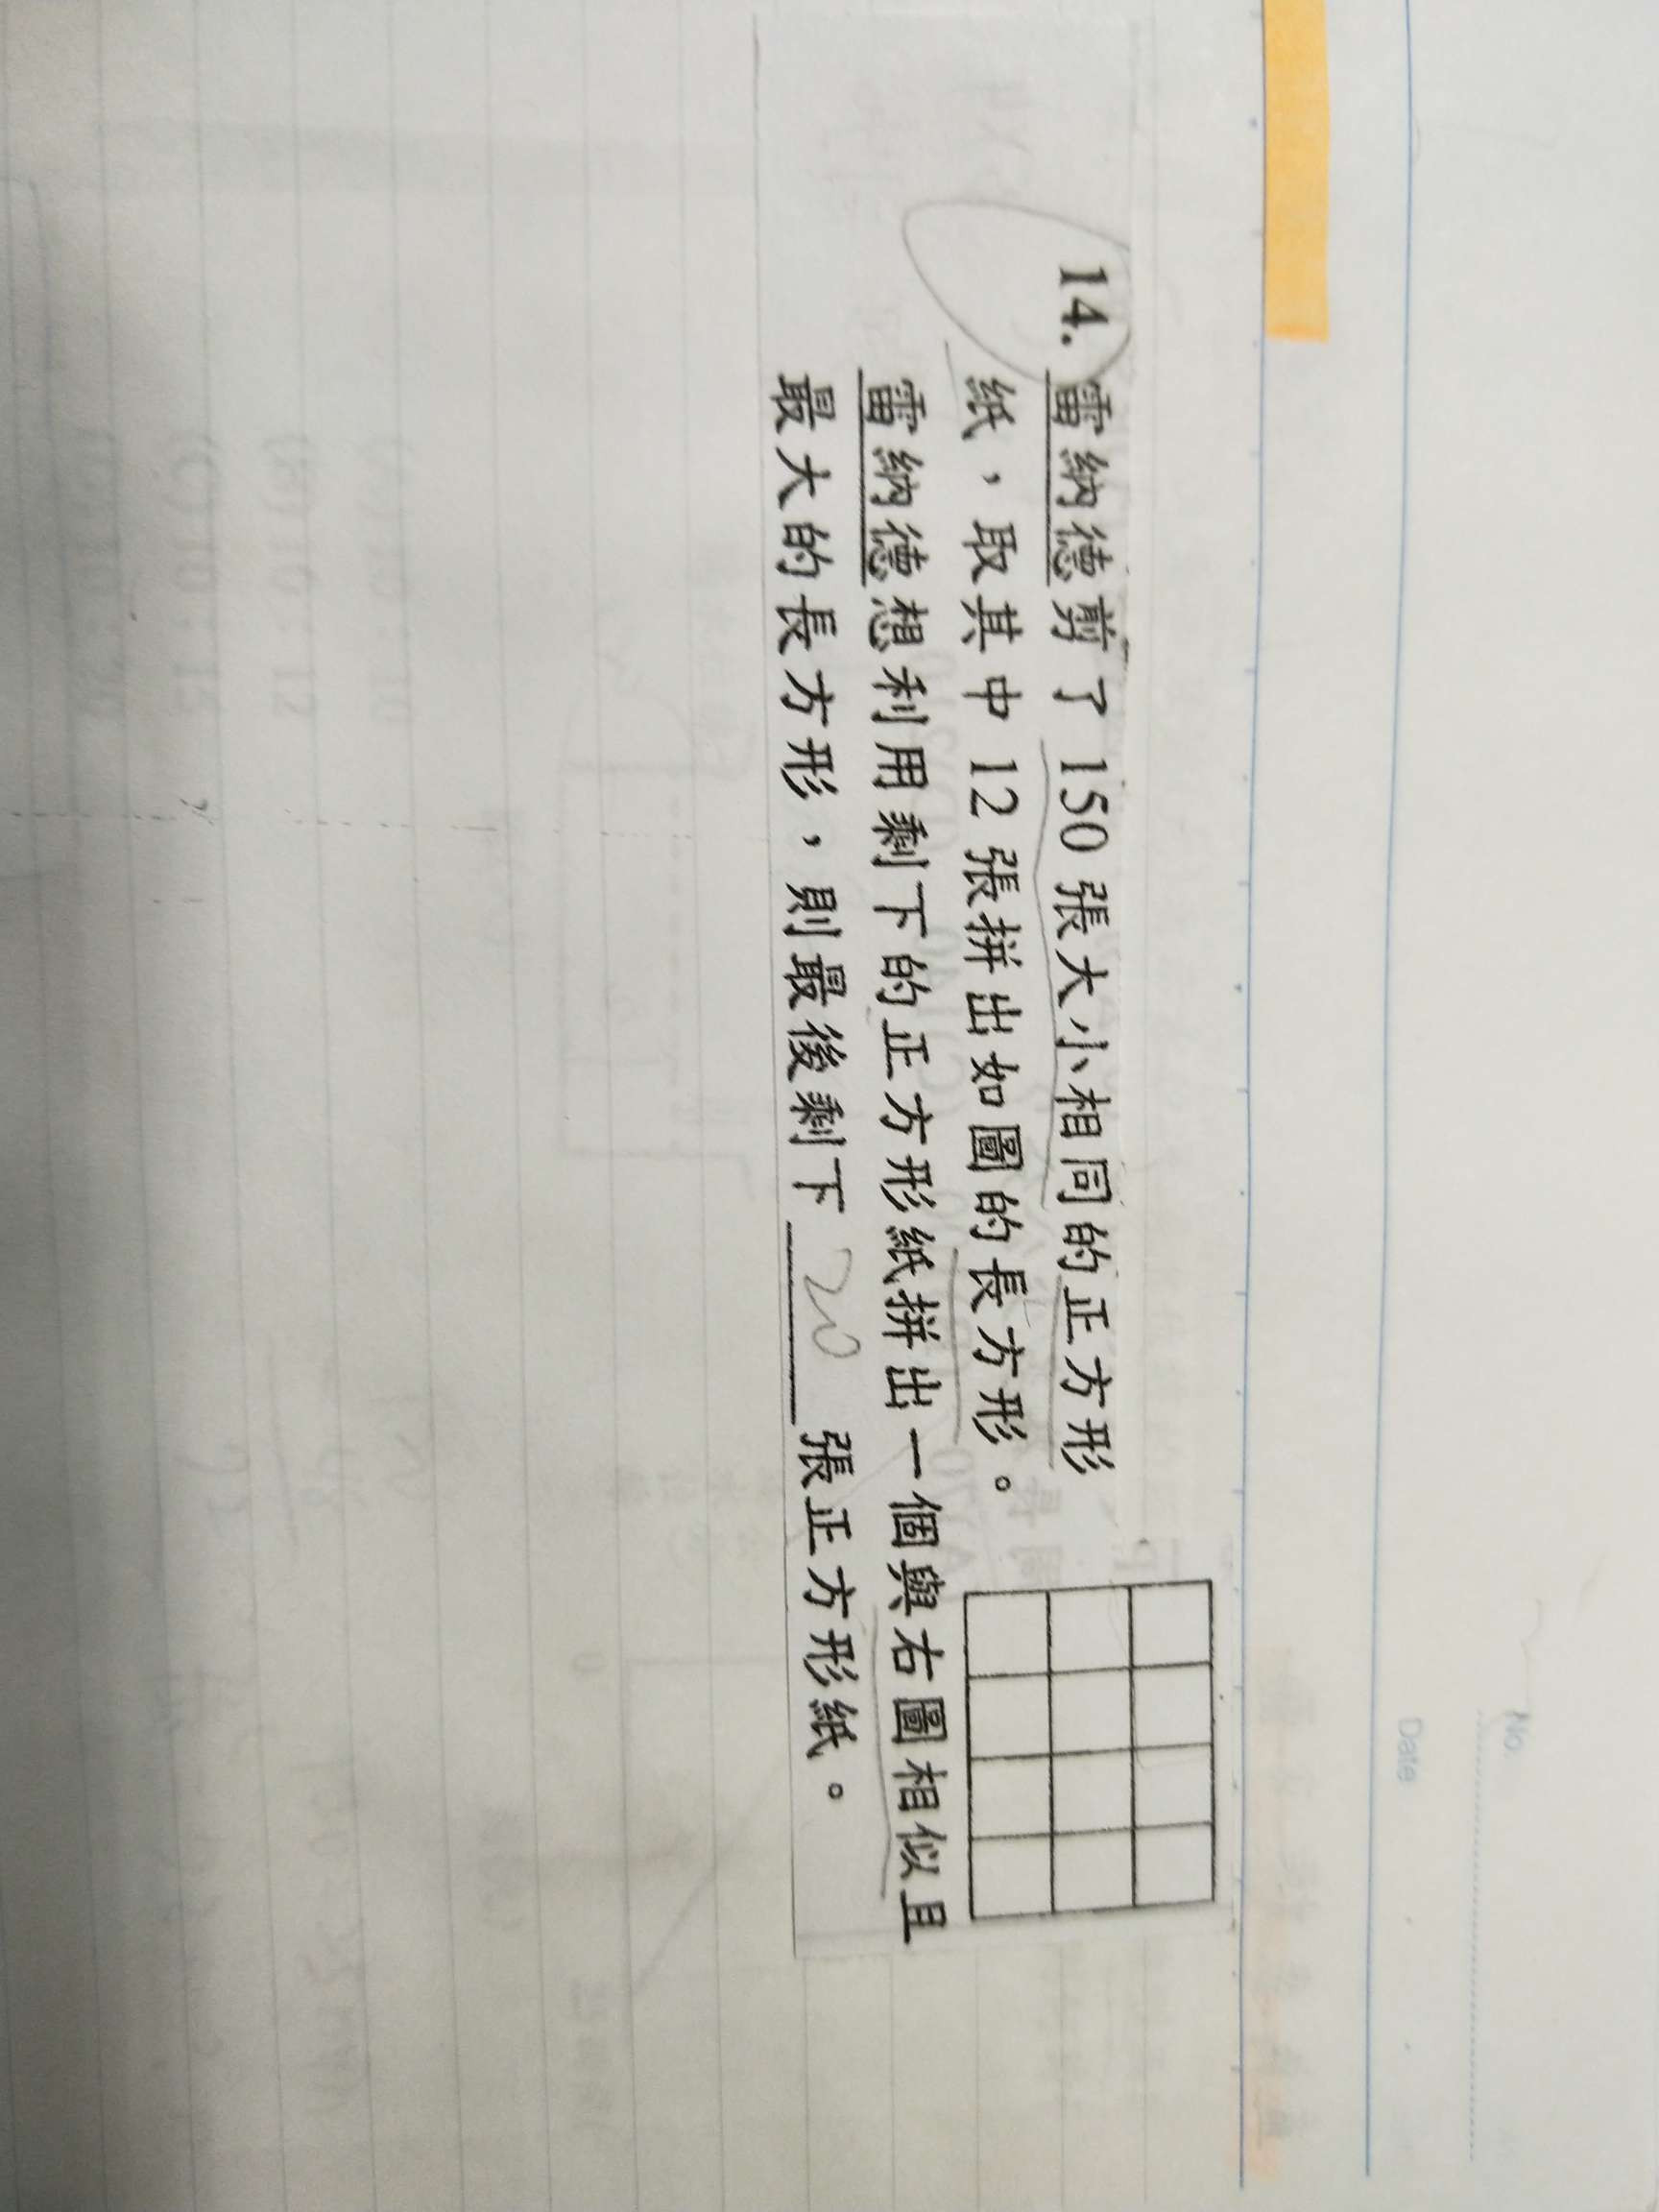 No.
Date
14. 雷納德剪了 150 張大小相同的正方形
紙，取其中 12 張拼出如圖的長方形。
雷納德想利用剩下的正方形紙拼出一個與右圖相似且
最大的長方形，則最後剩下 20 張正方形紙。